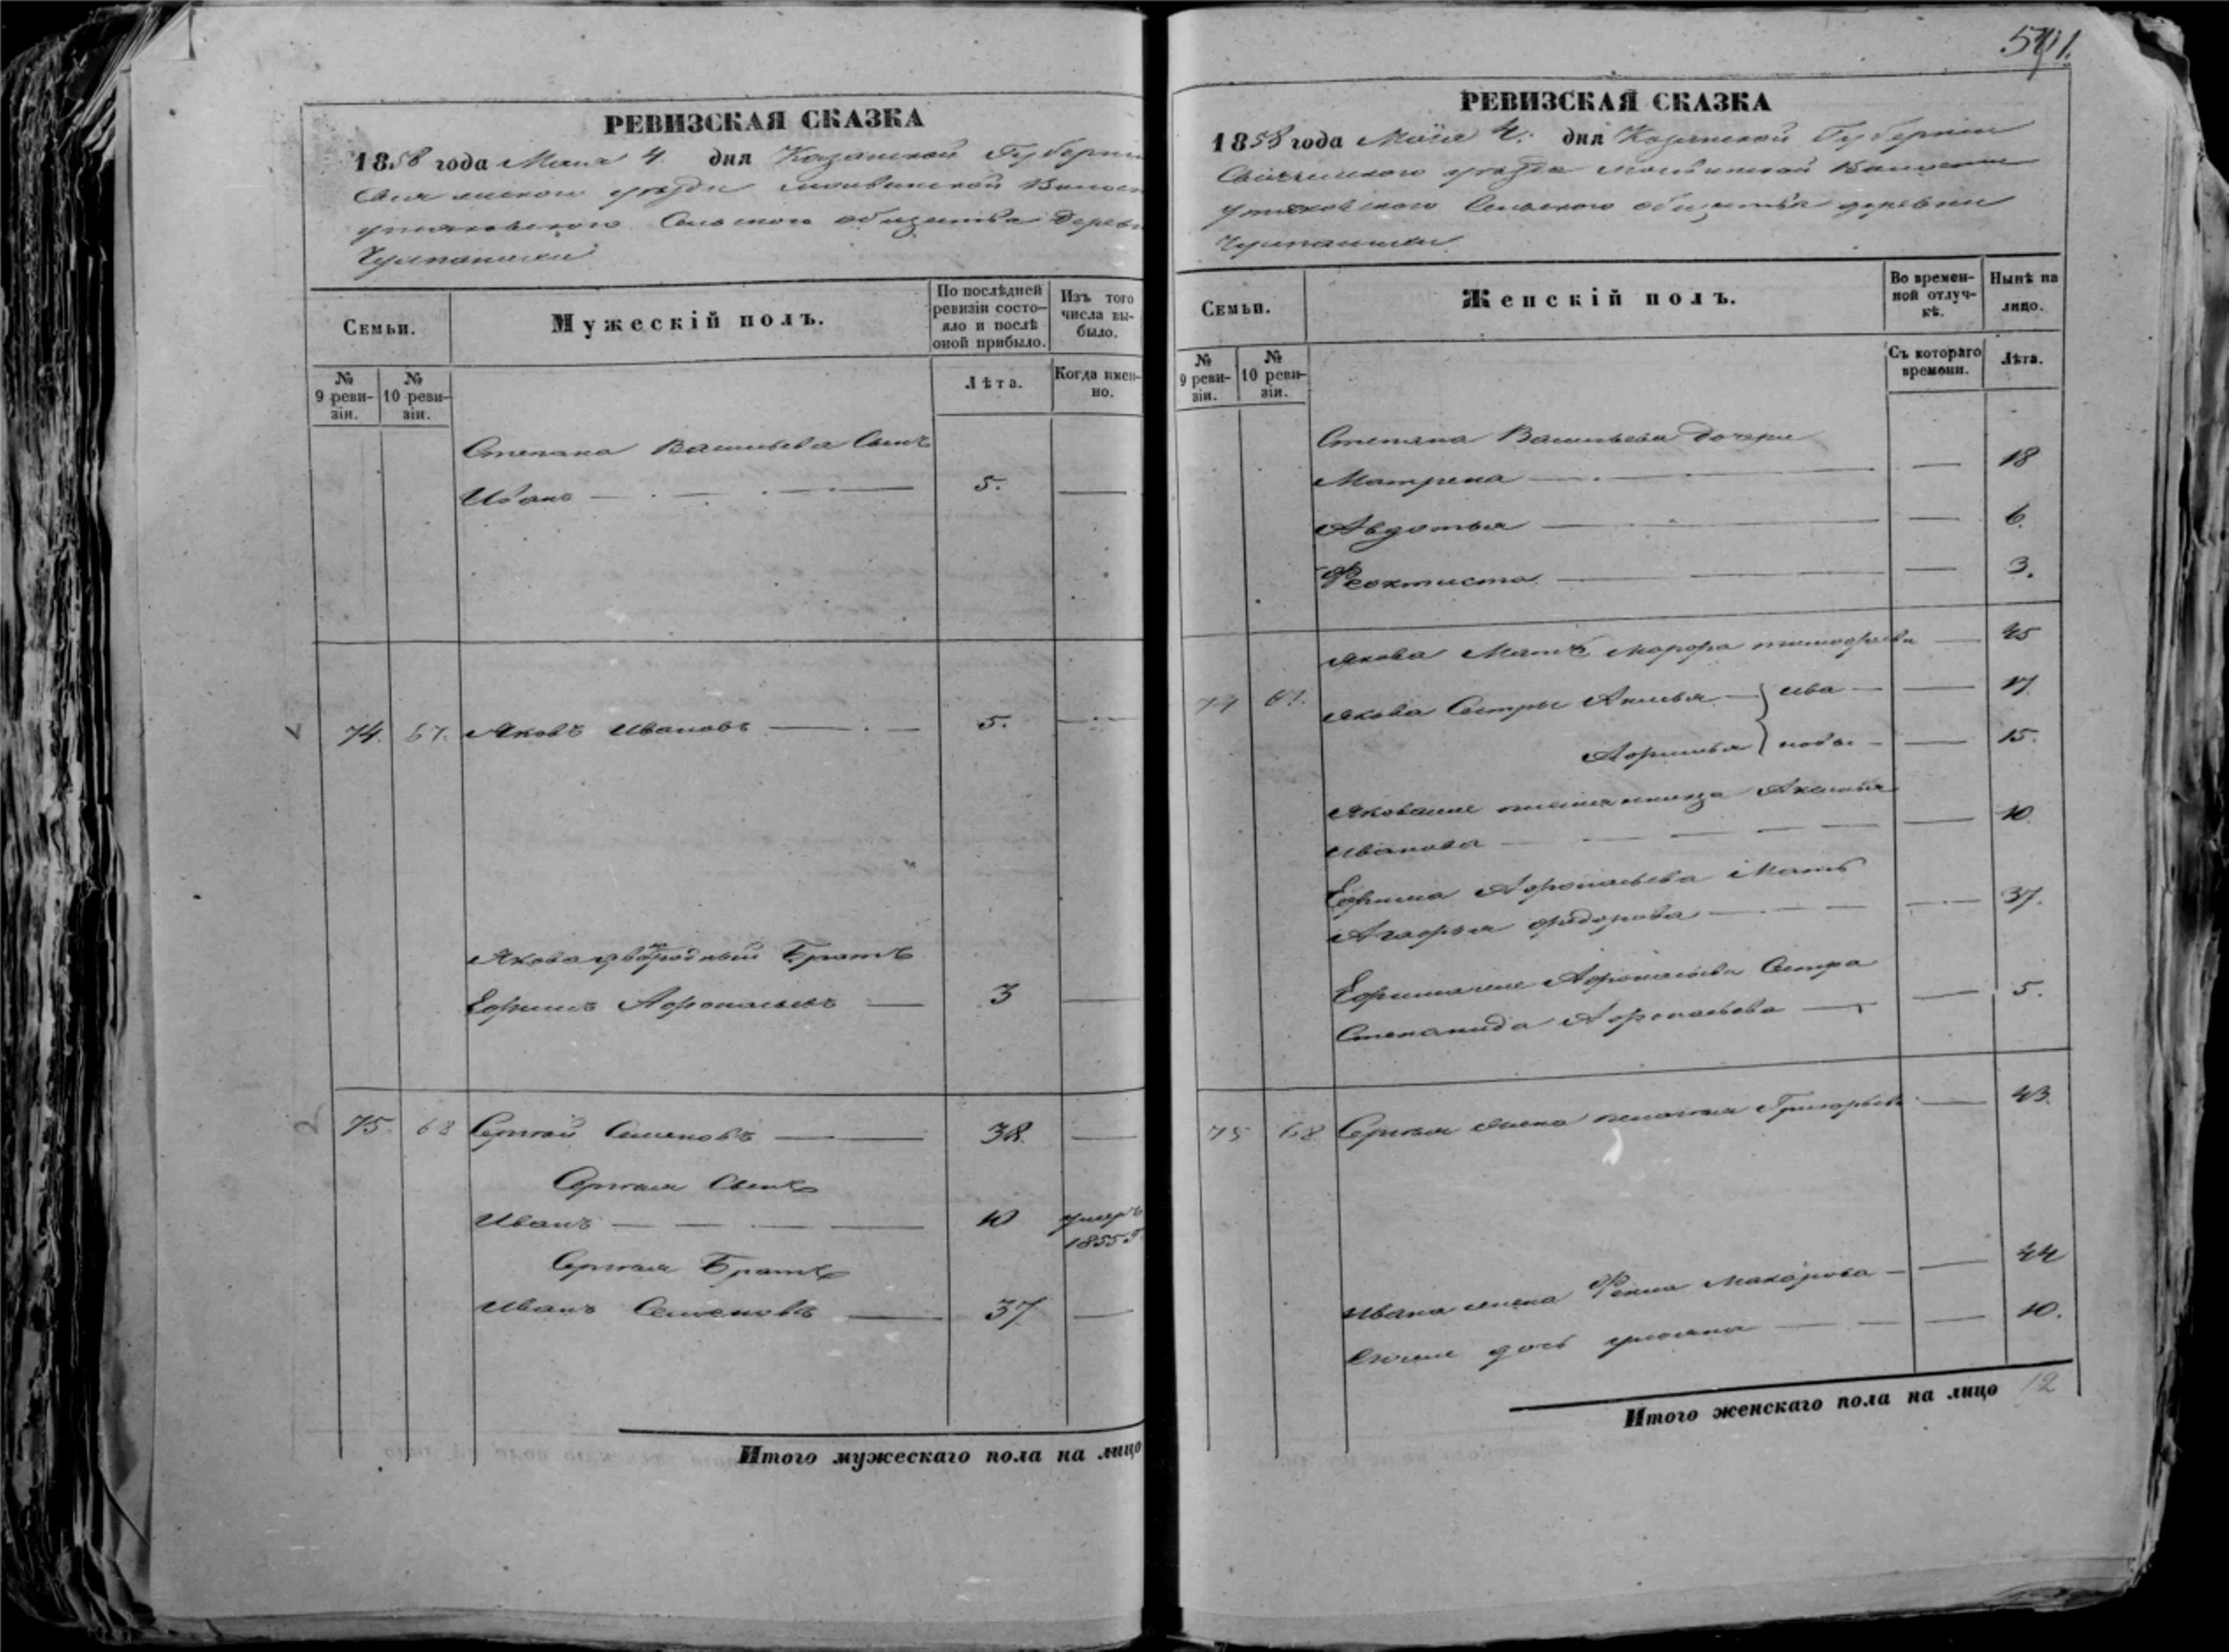 РЕВИЗСКАЯ СКАЗКА
1858 года Мая 4 дня Казанской Губернии
уезда Волос
Сельского общества дерев
По послѣдней ревизіи состояло и послѣ оной прибыло.
Изъ того числа выбыло.
Семьи.
Мужескій полъ.
№ 9 ревизіи.
№ 10 ревизіи.
Лѣта.
Когда имен-но.
Степана Васильева Сынъ
Иванъ 5.
74. 67. Яковъ Ивановъ 5.
Якова двоюродный Братъ
Ефимъ 3
75. 68 Сергей Семеновъ 38.
Сергея Сынъ
Иванъ 10 умеръ
1855 г.
Сергея Братъ
Иванъ Семеновъ 37
Итого мужескаго пола на лицо
571.
РЕВИЗСКАЯ СКАЗКА
1858 года Мая 4. дня Казанской Губернии
уезда Волости
Сельского общества деревни
Семьи.
Женскій полъ.
Во времен-ной отлуч-кѣ.
Нынѣ на лицо.
№ 9 реви-зіи.
№ 10 реви-зіи.
Съ котораго времени.
Лѣта.
Степана Васильева дочери
Матрена 18
Авдотья 6.
Феоктиста 3.
Якова Мать Марфа Тимофеева 45
74 67. Якова Сестры Акилья ива 17.
новы 15.
Иванова 10
Ефима Мать
Агафья Федорова 37.
Сестра
Степанида 5.
75 68 Сергея жена Пелагея Григорьева 43.
Ивана жена Фекла Макарова 44
дочь Ульяна 10.
Итого женскаго пола на лицо 12